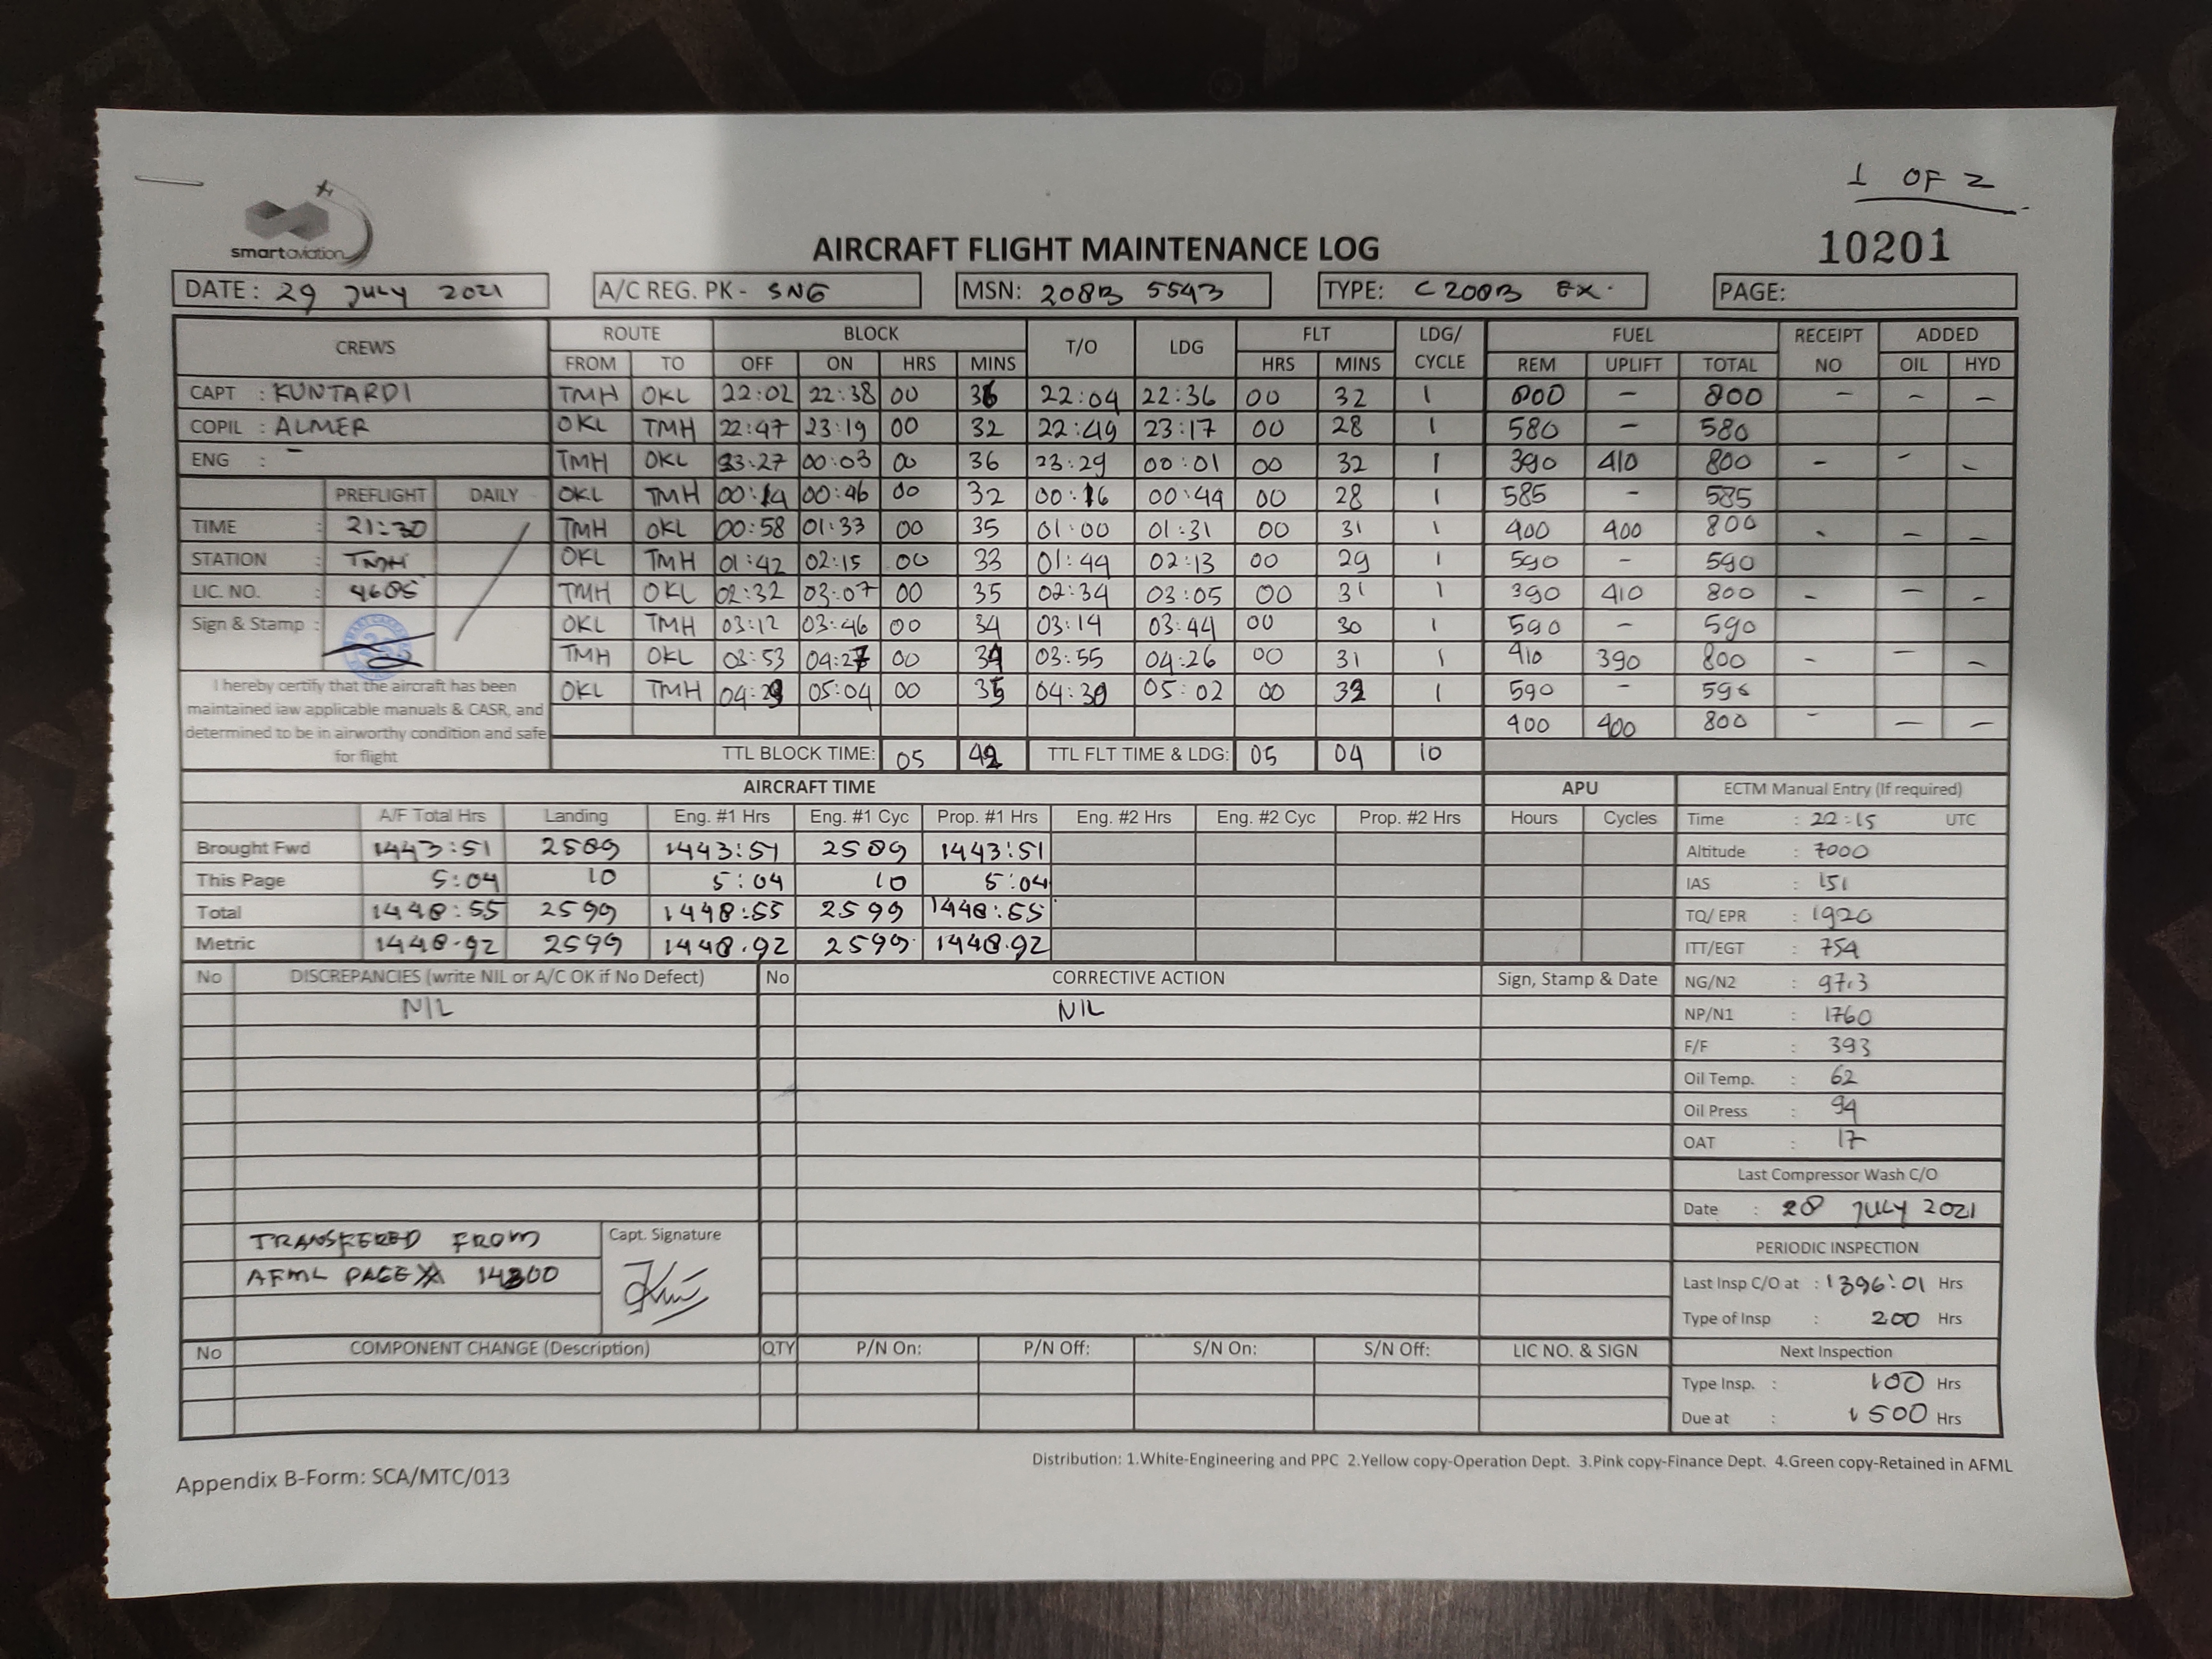 1 OF 2
smartaviation
AIRCRAFT FLIGHT MAINTENANCE LOG
10201
DATE: 29 JULY 2021 A/C REG. PK - SNG MSN: 208B 5543 TYPE: C 208B EX. PAGE:
CREWS ROUTE BLOCK T/O LDG FLT LDG/ CYCLE FUEL RECEIPT NO ADDED
FROM TO OFF ON HRS MINS HRS MINS REM UPLIFT TOTAL OIL HYD
CAPT : KUNTARDI TMH OKL 22:02 22:38 00 36 22:04 22:36 00 32 1 800 - 800 - - -
COPIL : ALMER OKL TMH 22:47 23:19 00 32 22:49 23:17 00 28 1 580 - 580
ENG : - TMH OKL 23:27 00:03 00 36 23:29 00:01 00 32 1 390 410 800 - - -
PREFLIGHT DAILY OKL TMH 00:14 00:46 00 32 00:16 00:44 00 28 1 585 - 585
TIME : 21:30 TMH OKL 00:58 01:33 00 35 01:00 01:31 00 31 1 400 400 800 - - -
STATION : TMH OKL TMH 01:42 02:15 00 33 01:44 02:13 00 29 1 590 - 590
LIC. NO. : 4605 TMH OKL 02:32 03:07 00 35 02:34 03:05 00 31 1 390 410 800 - - -
Sign & Stamp : OKL TMH 03:12 03:46 00 34 03:14 03:44 00 30 1 590 - 590
TMH OKL 03:53 04:27 00 34 03:55 04:26 00 31 1 410 390 800 - - -
OKL TMH 04:29 05:04 00 35 04:30 05:02 00 32 1 590 -
400 400 800 - - -
I hereby certify that the aircraft has been
maintained iaw applicable manuals & CASR, and
determined to be in airworthy condition and safe
for flight
TTL BLOCK TIME: 05 42 TTL FLT TIME & LDG: 05 04 10
AIRCRAFT TIME APU ECTM Manual Entry (If required)
A/F Total Hrs Landing Eng. #1 Hrs Eng. #1 Cyc Prop. #1 Hrs Eng. #2 Hrs Eng. #2 Cyc Prop. #2 Hrs Hours Cycles Time : 22:15 UTC
Brought Fwd 1443:51 2589 1443:51 2589 1443:51 Altitude : 7000
This Page 5:04 10 5:04 10 5:04 IAS : 151
Total 1448:55 2599 1448:55 2599 1448:55 TQ/ EPR : 1920
Metric 1448.92 2599 1448.92 2599 1448.92 ITT/EGT : 754
No DISCREPANCIES (write NIL or A/C OK if No Defect) No CORRECTIVE ACTION Sign, Stamp & Date NG/N2 : 97.3
NIL NIL NP/N1 : 1760
F/F : 393
Oil Temp. : 62
Oil Press : 94
OAT : 17
Last Compressor Wash C/O
Date : 28 JULY 2021
TRANSFERED FROM Capt. Signature
PERIODIC INSPECTION
AFML PAGE 14300
Last Insp C/O at : 1396:01 Hrs
Type of Insp : 200 Hrs
No COMPONENT CHANGE (Description) QTY P/N On: P/N Off: S/N On: S/N Off: LIC NO. & SIGN Next Inspection
Type Insp. : 100 Hrs
Due at : 1500 Hrs
Distribution: 1.White-Engineering and PPC 2.Yellow copy-Operation Dept. 3.Pink copy-Finance Dept. 4.Green copy-Retained in AFML
Appendix B-Form: SCA/MTC/013